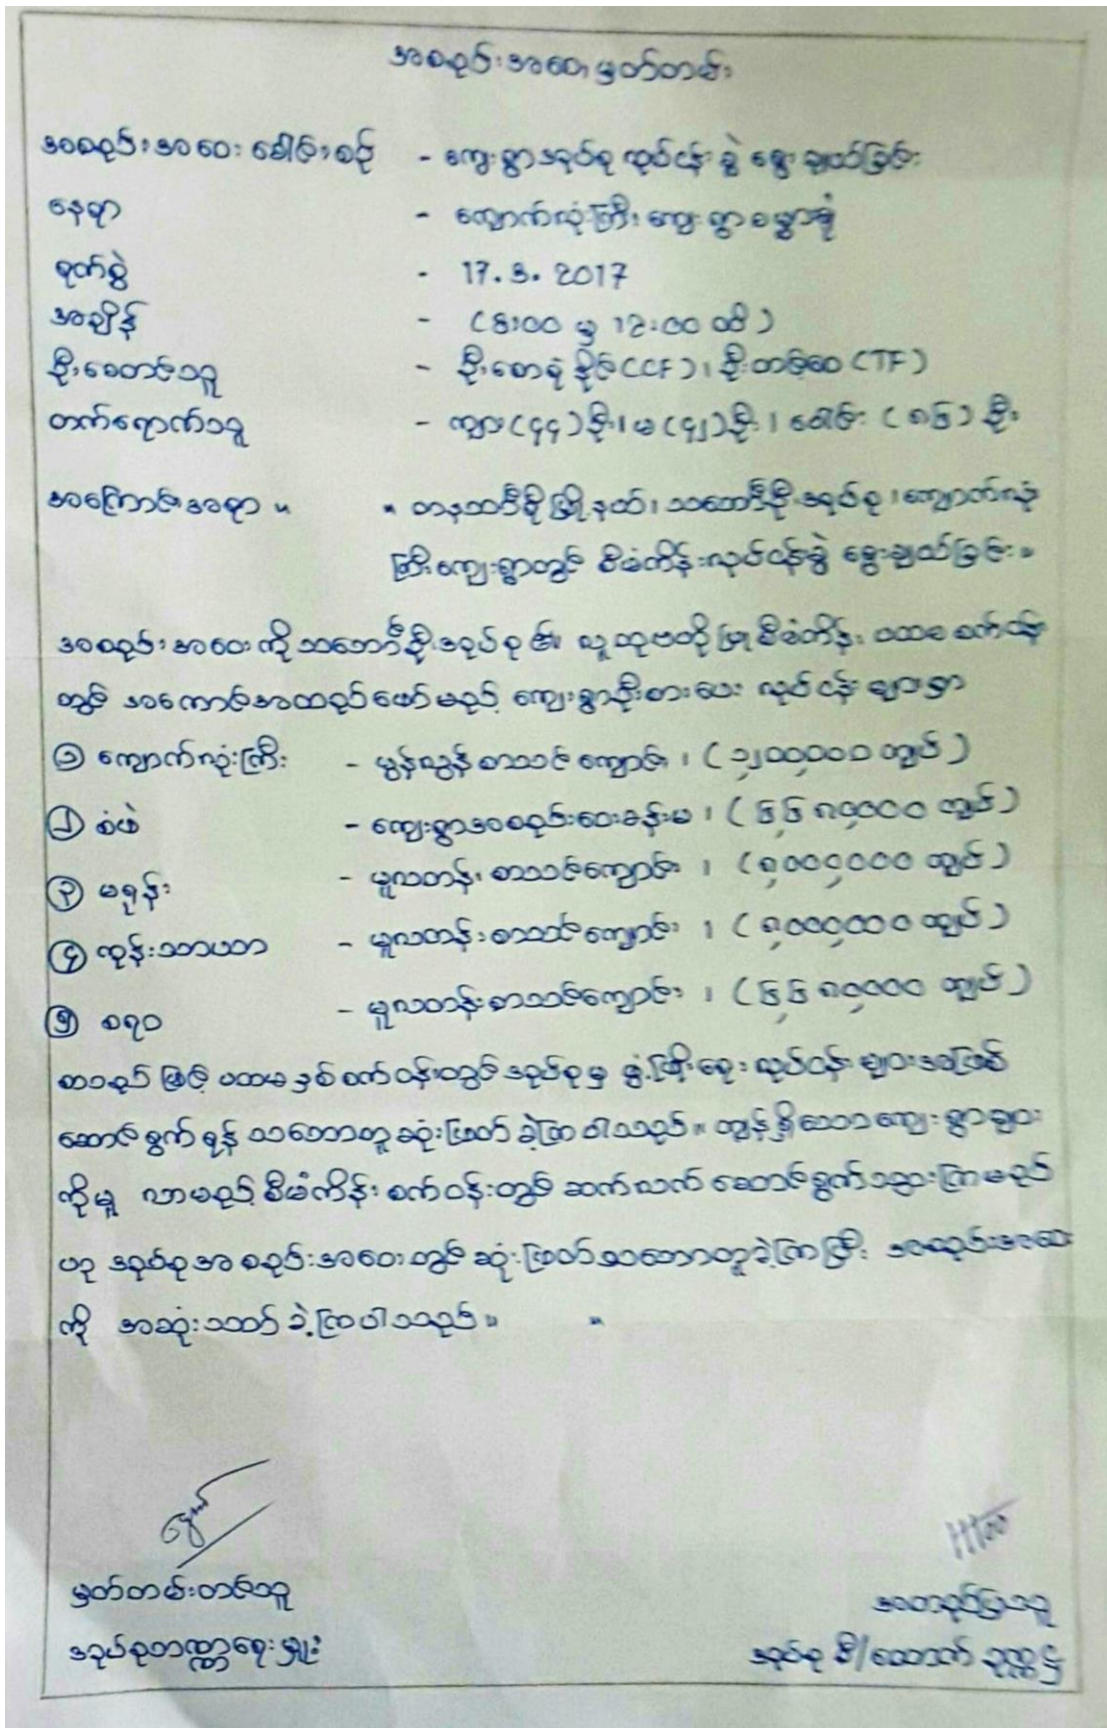 အစည်းအဝေးမှတ်တမ်း
အစည်းအဝေးခေါင်းစဉ် - ကျေးရွာအုပ်စုလုပ်ငန်းခွဲ ရွေးချယ်ခြင်း
နေရာ - ကျောက်လုံးကြီး ကျေးရွာစမ္ပာရုံ
ရက်စွဲ - 17.3.2017
အချိန် - (8:00 မှ 12:00 ထိ)
ဦးဆောင်သူ - (CCF)၊ (TF)
တက်ရောက်သူ - ကျား(၄၄)ဦး၊ မ(၄၂)ဦး၊ ပေါင်း (၈၆) ဦး
အကြောင်းအရာ ။ ။ တနင်္သာရီမြို့နယ်၊ သင်္ဘော အုပ်စု၊ ကျောက်လုံး
ကြီးကျေးရွာတွင် စီမံကိန်းလုပ်ငန်းခွဲ ရွေးချယ်ခြင်း။
အစည်းအဝေးကို အုပ်စု၏ လူထုဗဟိုပြုစီမံကိန်း ပထမစက်ဝန်း
တွင် အကောင်အထည်ဖော်မည့် ကျေးရွာဦးစားပေး လုပ်ငန်းများမှာ
၁ ကျောက်လုံးကြီး - မွန်လွန်စာသင်ကျောင်း၊ (၁၂၀၀၀၀၀၀ ကျပ်)
၂ စံဖဲ - ကျေးရွာအစည်းဝေးခန်းမ၊ (၆၆၈၀၀၀၀ ကျပ်)
၃ မရန်း - မူလတန်းစာသင်ကျောင်း၊ (၈၀၀၀၀၀၀ ကျပ်)
၄ ကွန်းသာယာ - မူလတန်းစာသင်ကျောင်း၊ (၈၀၀၀၀၀၀ ကျပ်)
၅ စရဝ - မူလတန်းစာသင်ကျောင်း၊ (၆၆၈၀၀၀၀ ကျပ်)
စသည်ဖြင့် ပထမနှစ်စက်ဝန်းတွင် အုပ်စုမှ ဖွံ့ဖြိုးရေးလုပ်ငန်းများအဖြစ်
ဆောင်ရွက်ရန် သဘောတူဆုံးဖြတ်ခဲ့ကြပါသည်။ ကျန်ရှိသောကျေးရွာများ
ကိုမူ လာမည့်စီမံကိန်းစက်ဝန်းတွင် ဆက်လက်ဆောင်ရွက်သွားကြမည်
ဟု အုပ်စုအစည်းအဝေးတွင်ဆုံးဖြတ်သဘောတူခဲ့ကြပြီး အစည်းအဝေး
ကို အဆုံးသတ်ခဲ့ကြပါသည်။ ။
မှတ်တမ်းတင်သူ
အတည်ပြုသူ
အုပ်စုဘဏ္ဍာရေးမှူး
အုပ်စု စီ/ထောက် ဥက္ကဋ္ဌ